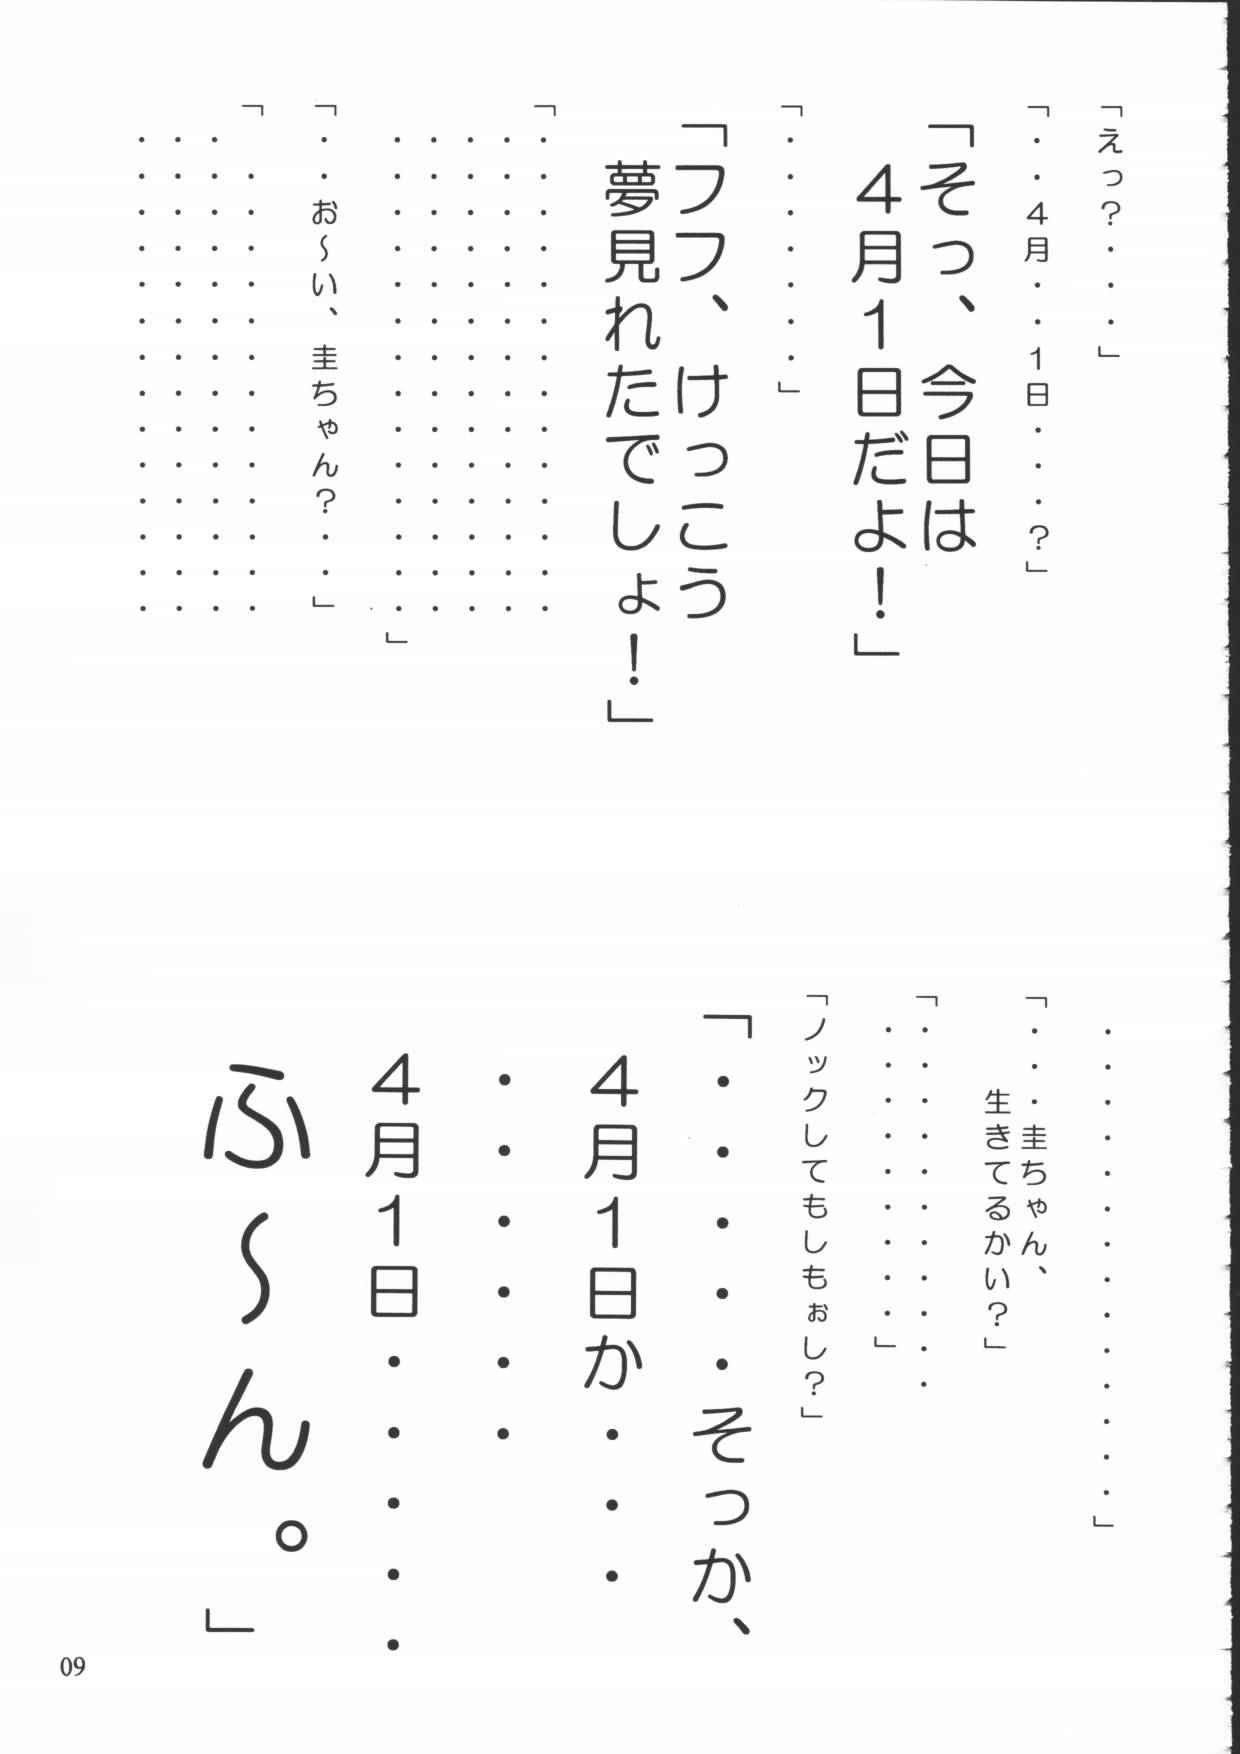 「えっ？・・・」
「・・４月・・１日・・・？」
「そっ、今日は
４月１日だよ！」
「・・・・・・・」
「フフ、けっこう
夢見れたでしょ！」
「・・・・・・・・・・・・・・
・・・・・・・・・・・・・・
・・・・・・・・・・・・・・
・・・・・・・・・・・・・・
・・・・・・・・・・・・・・」
「・・お～い、圭ちゃん？・・」
「・・・・・・・・・・・・・
・・・・・・・・・・・・・・
・・・・・・・・・・・・・・
・・・・・・・・・・・・・・
・・・・・・・・・・・・・・」
「・・・圭ちゃん、
生きてるかい？」
「・・・・・・・・・・・
・・・・・・・・・」
「ノックしてもしもぉし？」
「・・・・・そっか、
４月１日か・・・
・・・・・・
４月１日・・・・・
ふ～ん。」
09